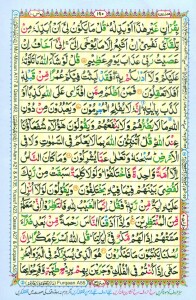 ١٩٠
بِقُرْاٰنٍ غَيْرِ هٰذَآ اَوْ بَدِّلْهُ ؕ قُلْ مَا يَكُوْنُ لِيْۤ اَنْ اُبَدِّلَهٗ مِنْ
تِلْقَآئِ نَفْسِيْ ۚ اِنْ اَتَّبِعُ اِلَّا مَا يُوْحٰۤى اِلَيَّ ۚ اِنِّيْۤ اَخَافُ اِنْ
عَصَيْتُ رَبِّيْ عَذَابَ يَوْمٍ عَظِيْمٍ قُلْ لَّوْ شَآءَ اللّٰهُ مَا تَلَوْتُهٗ
عَلَيْكُمْ وَلَاۤ اَدْرٰىكُمْ بِهٖ ۖ فَقَدْ لَبِثْتُ فِيْكُمْ عُمُرًا مِّنْ قَبْلِهٖ ؕ
اَفَلَا تَعْقِلُوْنَ فَمَنْ اَظْلَمُ مِمَّنِ افْتَرٰى عَلَى اللّٰهِ كَذِبًا اَوْ
كَذَّبَ بِاٰيٰتِهٖ ؕ اِنَّهٗ لَا يُفْلِحُ الْمُجْرِمُوْنَ وَيَعْبُدُوْنَ مِنْ دُوْنِ
اللّٰهِ مَا لَا يَضُرُّهُمْ وَلَا يَنْفَعُهُمْ وَيَقُوْلُوْنَ هٰۤؤُلَآءِ شُفَعَآؤُنَا
عِنْدَ اللّٰهِ ؕ قُلْ اَتُنَبِّئُوْنَ اللّٰهَ بِمَا لَا يَعْلَمُ فِي السَّمٰوٰتِ وَلَا فِي
الْاَرْضِ ؕ سُبْحٰنَهٗ وَتَعٰلٰى عَمَّا يُشْرِكُوْنَ وَمَا كَانَ النَّاسُ
اِلَّاۤ اُمَّةً وَّاحِدَةً فَاخْتَلَفُوْا ؕ وَلَوْلَا كَلِمَةٌ سَبَقَتْ مِنْ رَّبِّكَ
لَقُضِيَ بَيْنَهُمْ فِيْمَا فِيْهِ يَخْتَلِفُوْنَ وَيَقُوْلُوْنَ لَوْلَاۤ اُنْزِلَ
عَلَيْهِ اٰيَةٌ مِّنْ رَّبِّهٖ ۚ فَقُلْ اِنَّمَا الْغَيْبُ لِلّٰهِ فَانْتَظِرُوْا ۚ اِنِّيْ مَعَكُمْ
مِّنَ الْمُنْتَظِرِيْنَ وَاِذَاۤ اَذَقْنَا النَّاسَ رَحْمَةً مِّنْۢ بَعْدِ ضَرَّآءَ
مَسَّتْهُمْ اِذَا لَهُمْ مَّكْرٌ فِيْۤ اٰيَاتِنَا ؕ قُلِ اللّٰهُ اَسْرَعُ مَكْرًا ؕ اِنَّ
رُسُلَنَا يَكْتُبُوْنَ مَا تَمْكُرُوْنَ هُوَ الَّذِيْ يُسَيِّرُكُمْ فِي الْبَرِّ وَالْبَحْرِ ؕ
حَتّٰۤى اِذَا كُنْتُمْ فِي الْفُلْكِ ۚ وَجَرَيْنَ بِهِمْ بِرِيْحٍ طَيِّبَةٍ وَّفَرِحُوْا بِهَا